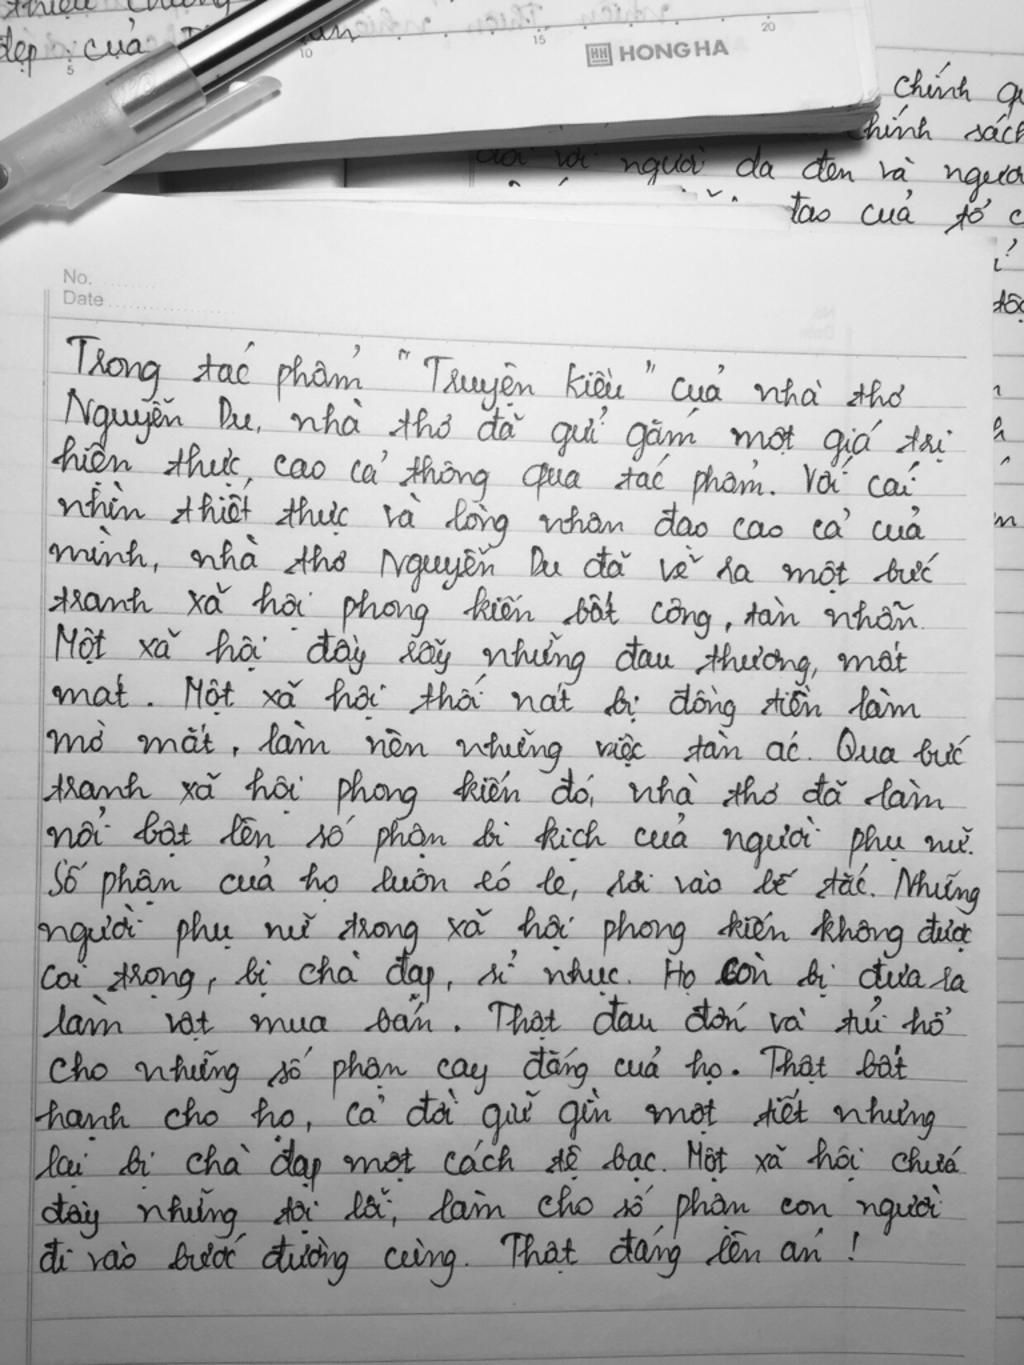 đẹp của
5 10 15 20
HONG HA
chính
chính sách
đối với người da đen và người
tạo của tổ c
No.
Date
Trong tác phẩm "Truyện Kiều" của nhà thơ
Nguyễn Du, nhà thơ đã gửi gắm một giá trị
hiện thực, cao cả thông qua tác phẩm. Với cái
nhìn thiết thực và lòng nhân đạo cao cả của
mình, nhà thơ Nguyễn Du đã vẽ ra một bức
tranh xã hội phong kiến bất công, tàn nhẫn.
Một xã hội đầy rẫy những đau thương, mất
mát. Một xã hội thối nát bị đồng tiền làm
mờ mắt, làm nên những việc tàn ác. Qua bức
tranh xã hội phong kiến đó, nhà thơ đã làm
nổi bật lên số phận bi kịch của người phụ nữ.
Số phận của họ luôn éo le, rơi vào bế tắc. Những
người phụ nữ trong xã hội phong kiến không được
coi trọng, bị chà đạp, sỉ nhục. Họ còn bị đưa ra
làm vật mua bán. Thật đau đớn và tủi hổ
cho những số phận cay đắng của họ. Thật bất
hạnh cho họ, cả đời giữ gìn một tiết nhưng
lại bị chà đạp một cách tệ bạc. Một xã hội chứa
đầy những tội lỗi, làm cho số phận con người
đi vào bước đường cùng. Thật đáng lên án!